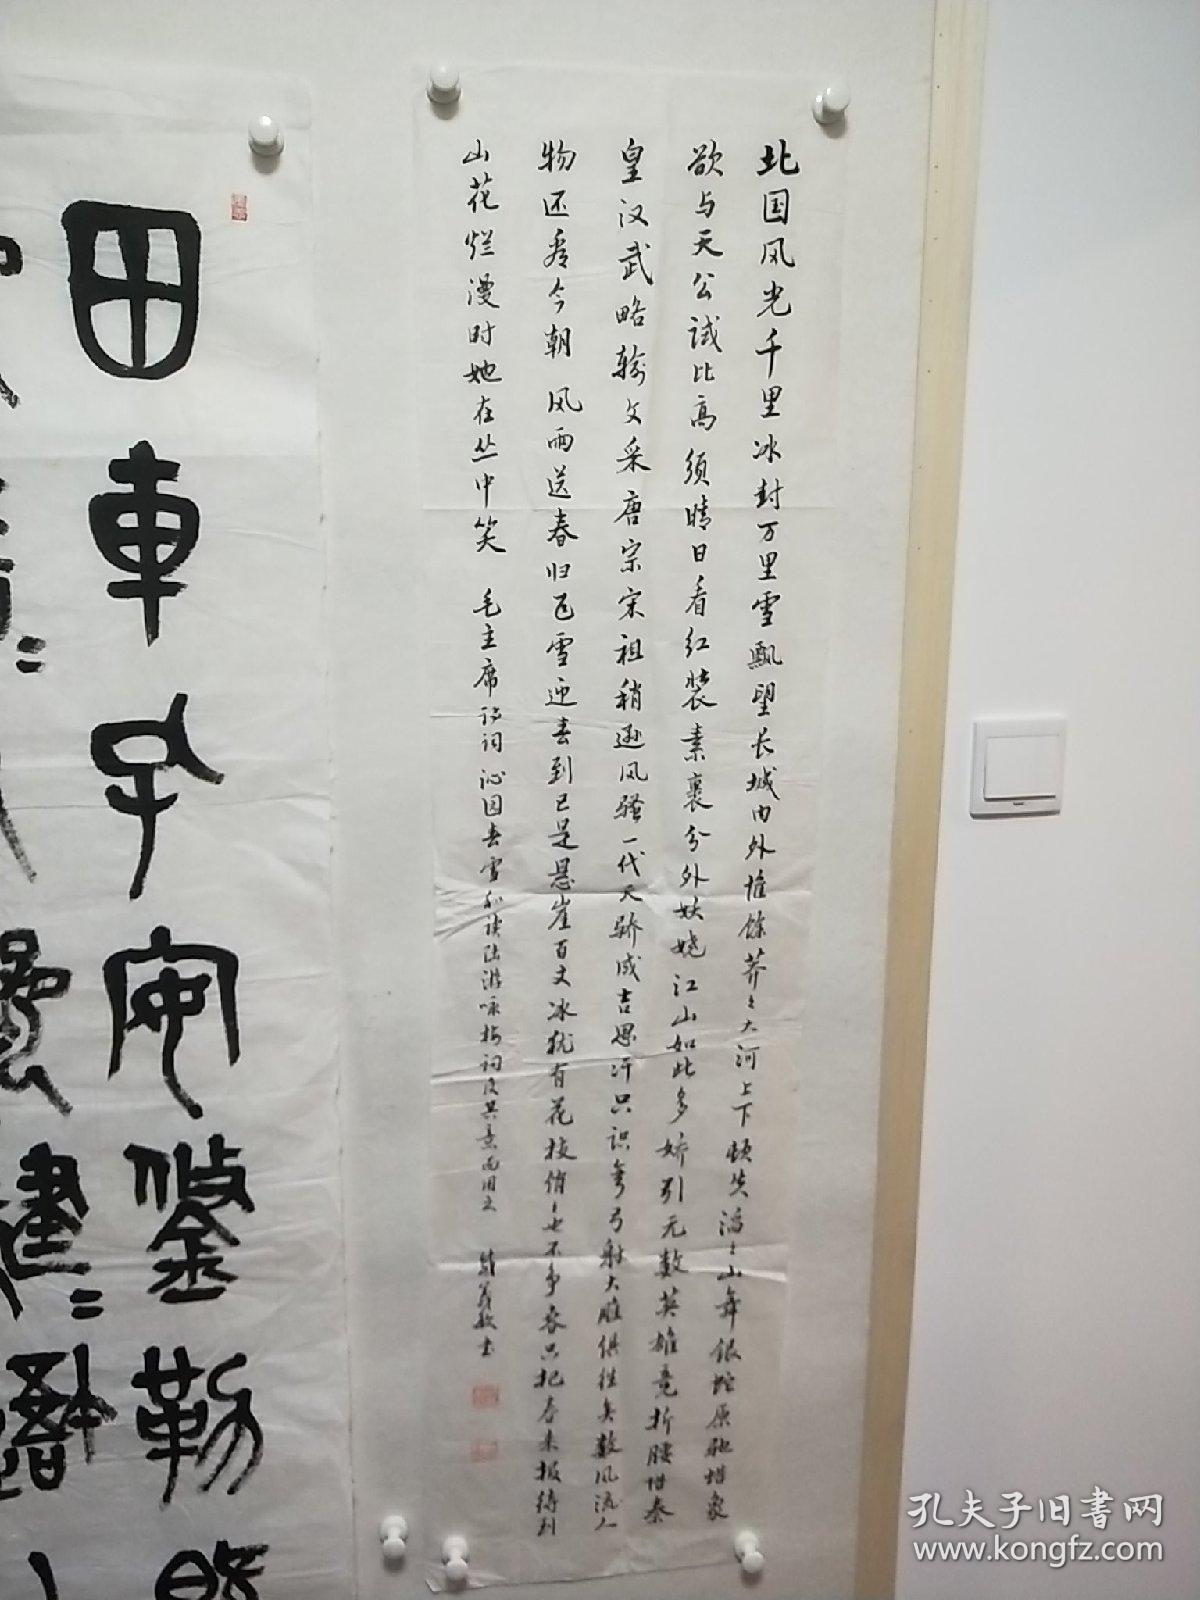 北国风光千里冰封万里雪飘望长城内外惟余莽々大河上下顿失滔々山舞银蛇原驰蜡象
欲与天公试比高须晴日看红装素裹分外妖娆江山如此多娇引无数英雄竞折腰惜秦
皇汉武略输文采唐宗宋祖稍逊风骚一代天骄成吉思汗只识弯弓射大雕俱往矣数风流人
物还看今朝 风雨送春归飞雪迎春到已是悬崖百丈冰犹有花枝俏々也不争春只把春来报待到
山花烂漫时她在丛中笑 毛主席诗词沁园春雪和读陆游咏梅词反其意而用之 书
田车孔安鋚勒
孔夫子旧书网
www.kongfz.com